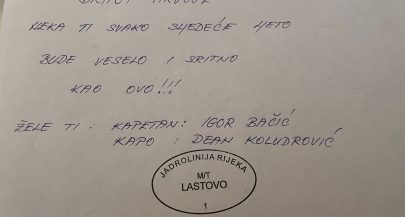 NEKA TI SVAKO SLJEDEĆE LJETO
BUDE VESELO I SRITNO
KAO OVO!!!
ŽELE TI : KAPETAN: IGOR BAČIĆ
KAPO : DEAN KOLUDROVIĆ
JADROLINIJA RIJEKA
M/T
LASTOVO
1